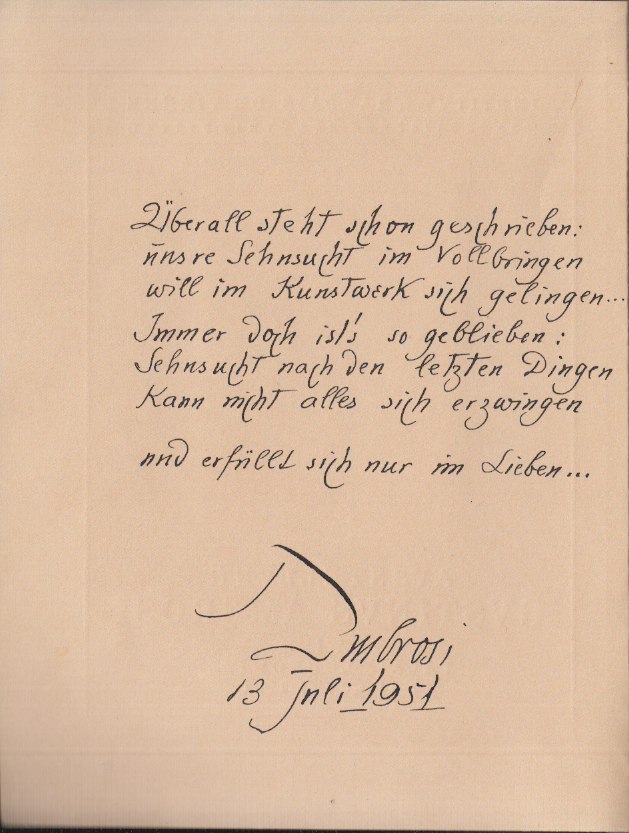 Überall steht schon geschrieben:
unsre Sehnsucht im Vollbringen
will im Kunstwerk sich gelingen...
Immer doch ist's so geblieben:
Sehnsucht nach den letzten Dingen
Kann nicht alles sich erzwingen
und erfüllt sich nur im Lieben...
Ambrosi
13 Juli 1951